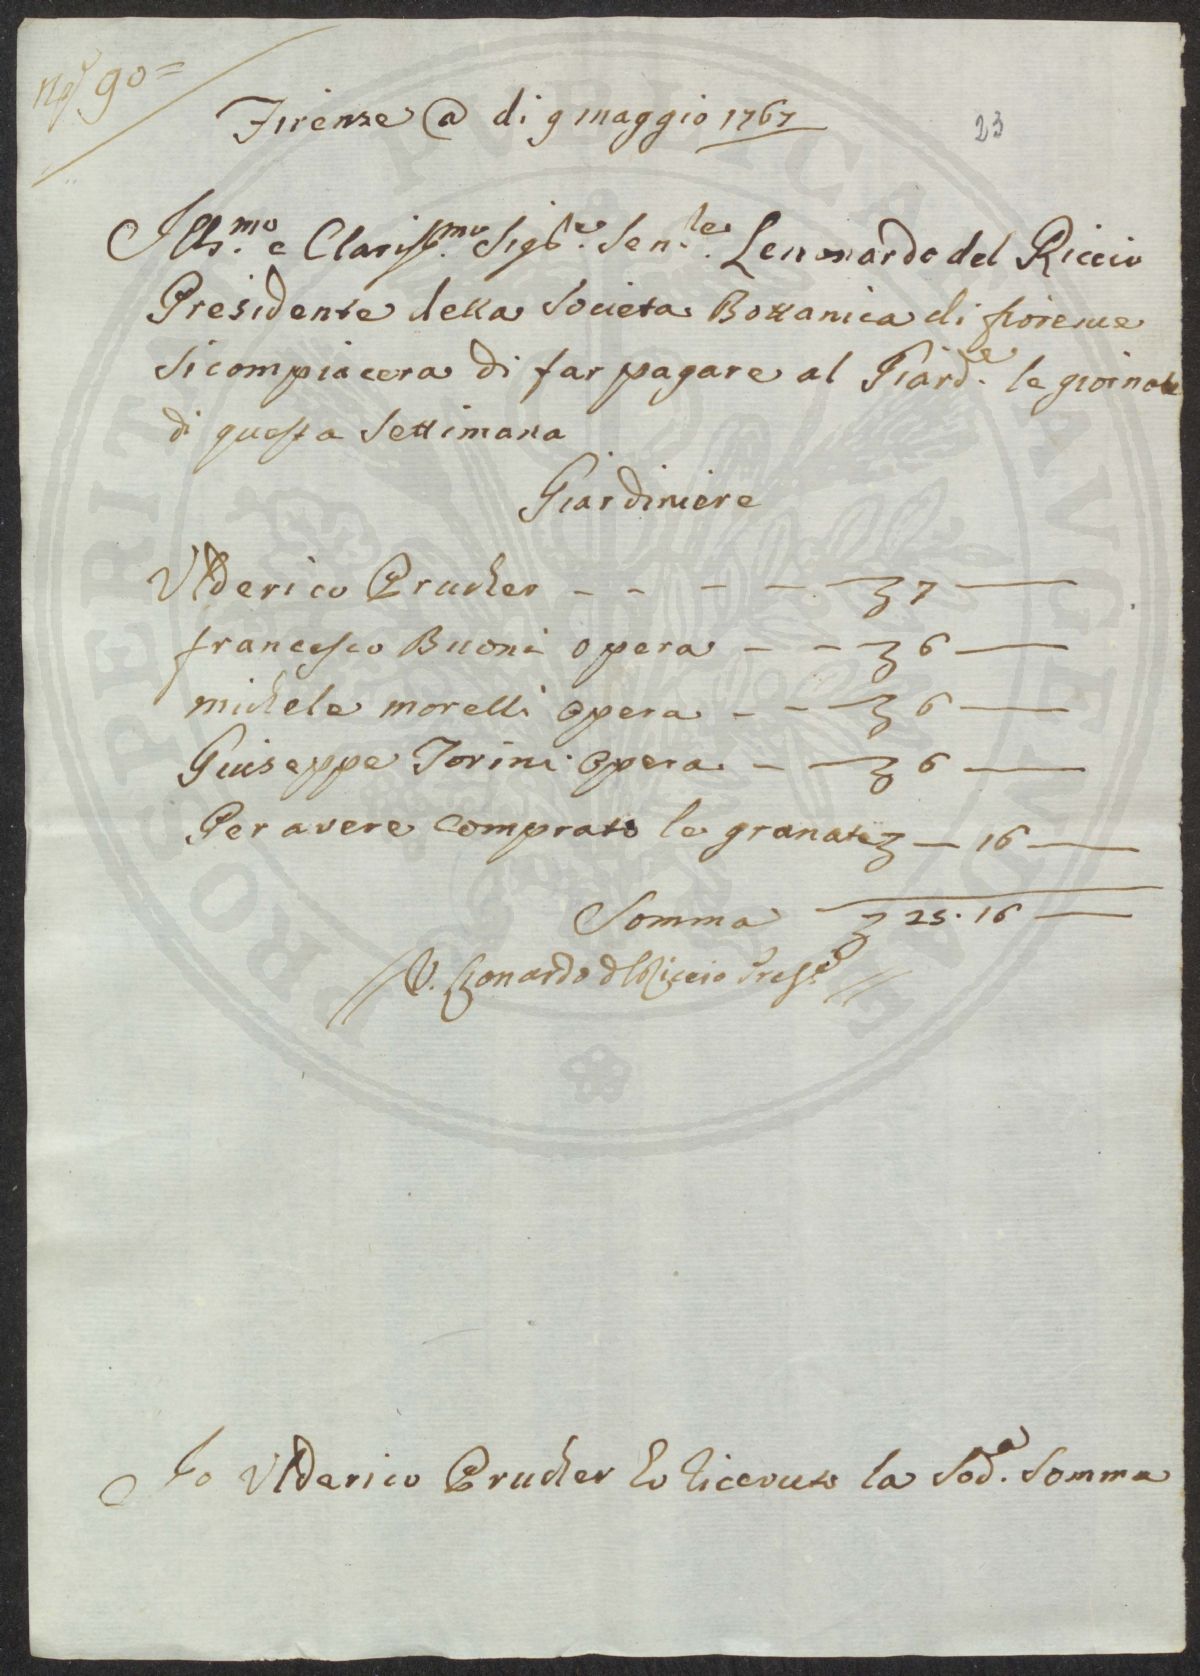 nº 90=
Firenze @ di 9 maggio 1767
23
Ills.mo e Clariss.mo Sig.re Sen.le Lenonardo del Riccio
Presidente della Societa Bottanica di fiorenze
Si compiacera di far pagare al Giard.e le giornate
di questa Settimana
Giardiniere
Ulderico Prucher - - - - 7 —
francesco Buoni opera - - 6 —
michele morelli opera - - 6 —
Giuseppe Torini opera - 6 —
Per avere Comprato le granate — 16 —
Somma 25.16 —
V. Leonardo del Riccio Pres.e
Io Ulderico Prucher ho riceuuto la Sod.a Somma
PROSPERITATI PUBLICAE AUGENDAE